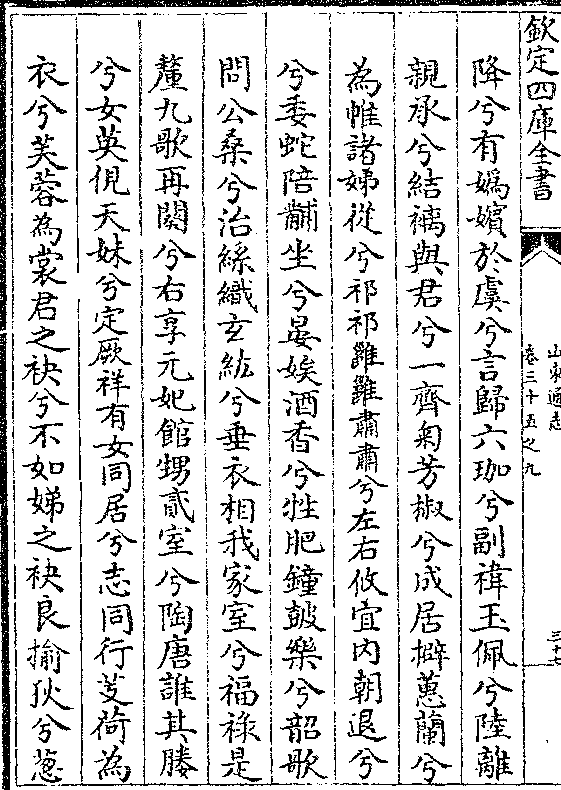 欽定四庫全書
山東通志
卷三十五之九
三十七
降兮有嬀嬪於虞兮言歸六珈兮副褘玉佩兮陸離
親承兮結褵與君兮一齊菊芳椒兮成居擗蕙蘭兮
為帷諸娣從兮祁祁雝雝肅肅兮左右攸宜内朝退兮
兮委蛇陪黼坐兮晏娭酒香兮牲肥鐘鼓樂兮韶歌
問公桑兮治絲織玄紞兮垂衣相我家室兮福祿是
釐九歌再闋兮右享元妃館甥貳室兮陶唐誰其媵
兮女英俔天妹兮定厥祥有女同居兮志同行芰荷為
衣兮芙蓉為裳君之袂兮不如娣之袂良揄狄兮葱